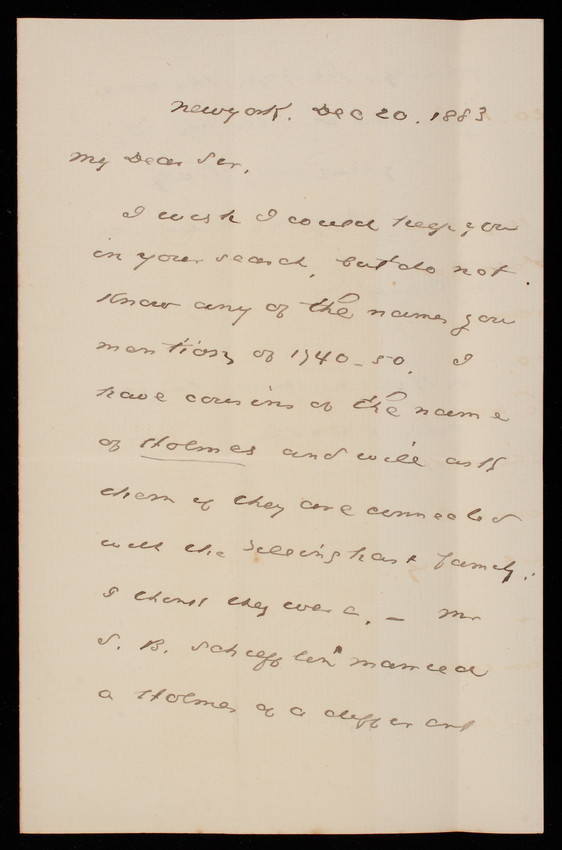 Newyork. Dec 20. 1883
My Dear Sir,
I wish I could help you
in your search, but do not
know any of the names you
mention of 1740-50. I
have cousins of the name
of Holmes and will ask
them if they are connected
with the Teleinghast family.
I think they were. - Mr
S. B. Schiefflin married
a Holmes of a different